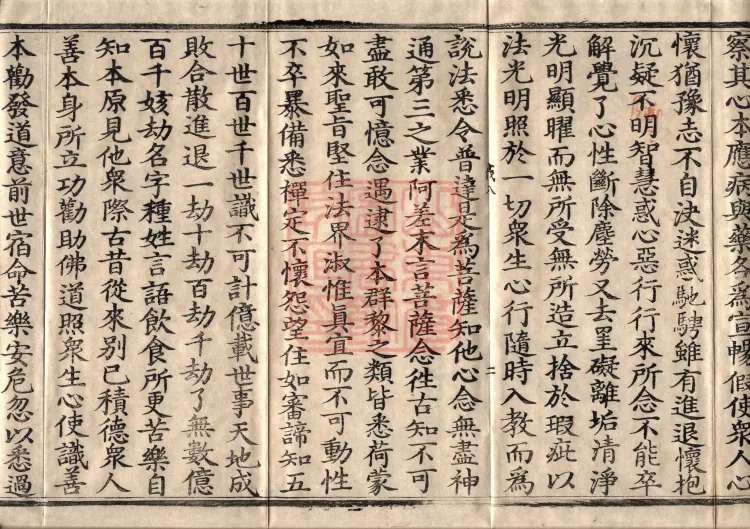 察其心本應病與藥各為宣暢假使衆人心
懷猶豫志不自決迷惑馳騁雖有進退懷抱
沉疑不明智慧惑心惡行行來所念不能卒
解覺了心性斷除塵勞又去罣礙離垢清淨
光明顯曜而無所受無所造立捨於瑕疵以
法光明照於一切衆生心行隨時入教而為
八 二
說法悉令普達是為菩薩知他心念無盡神
通第三之業阿差末言菩薩念徃古知不可
盡敢可憶念遇逮了本群黎之類皆悉荷蒙
如來聖旨堅住法界淑惟真宜而不可動性
不卒暴備悉禪定不懷怨望住如審諦知五
十世百世千世識不可計億載世事天地成
敗合散進退一劫十劫百劫千劫了無數億
百千姟劫名字種姓言語飲食所更苦樂自
知本原見他衆際古昔從來別已積德衆人
善本身所立功勸助佛道照衆生心使識善
本勸發道意前世宿命苦樂安危忽以悉過